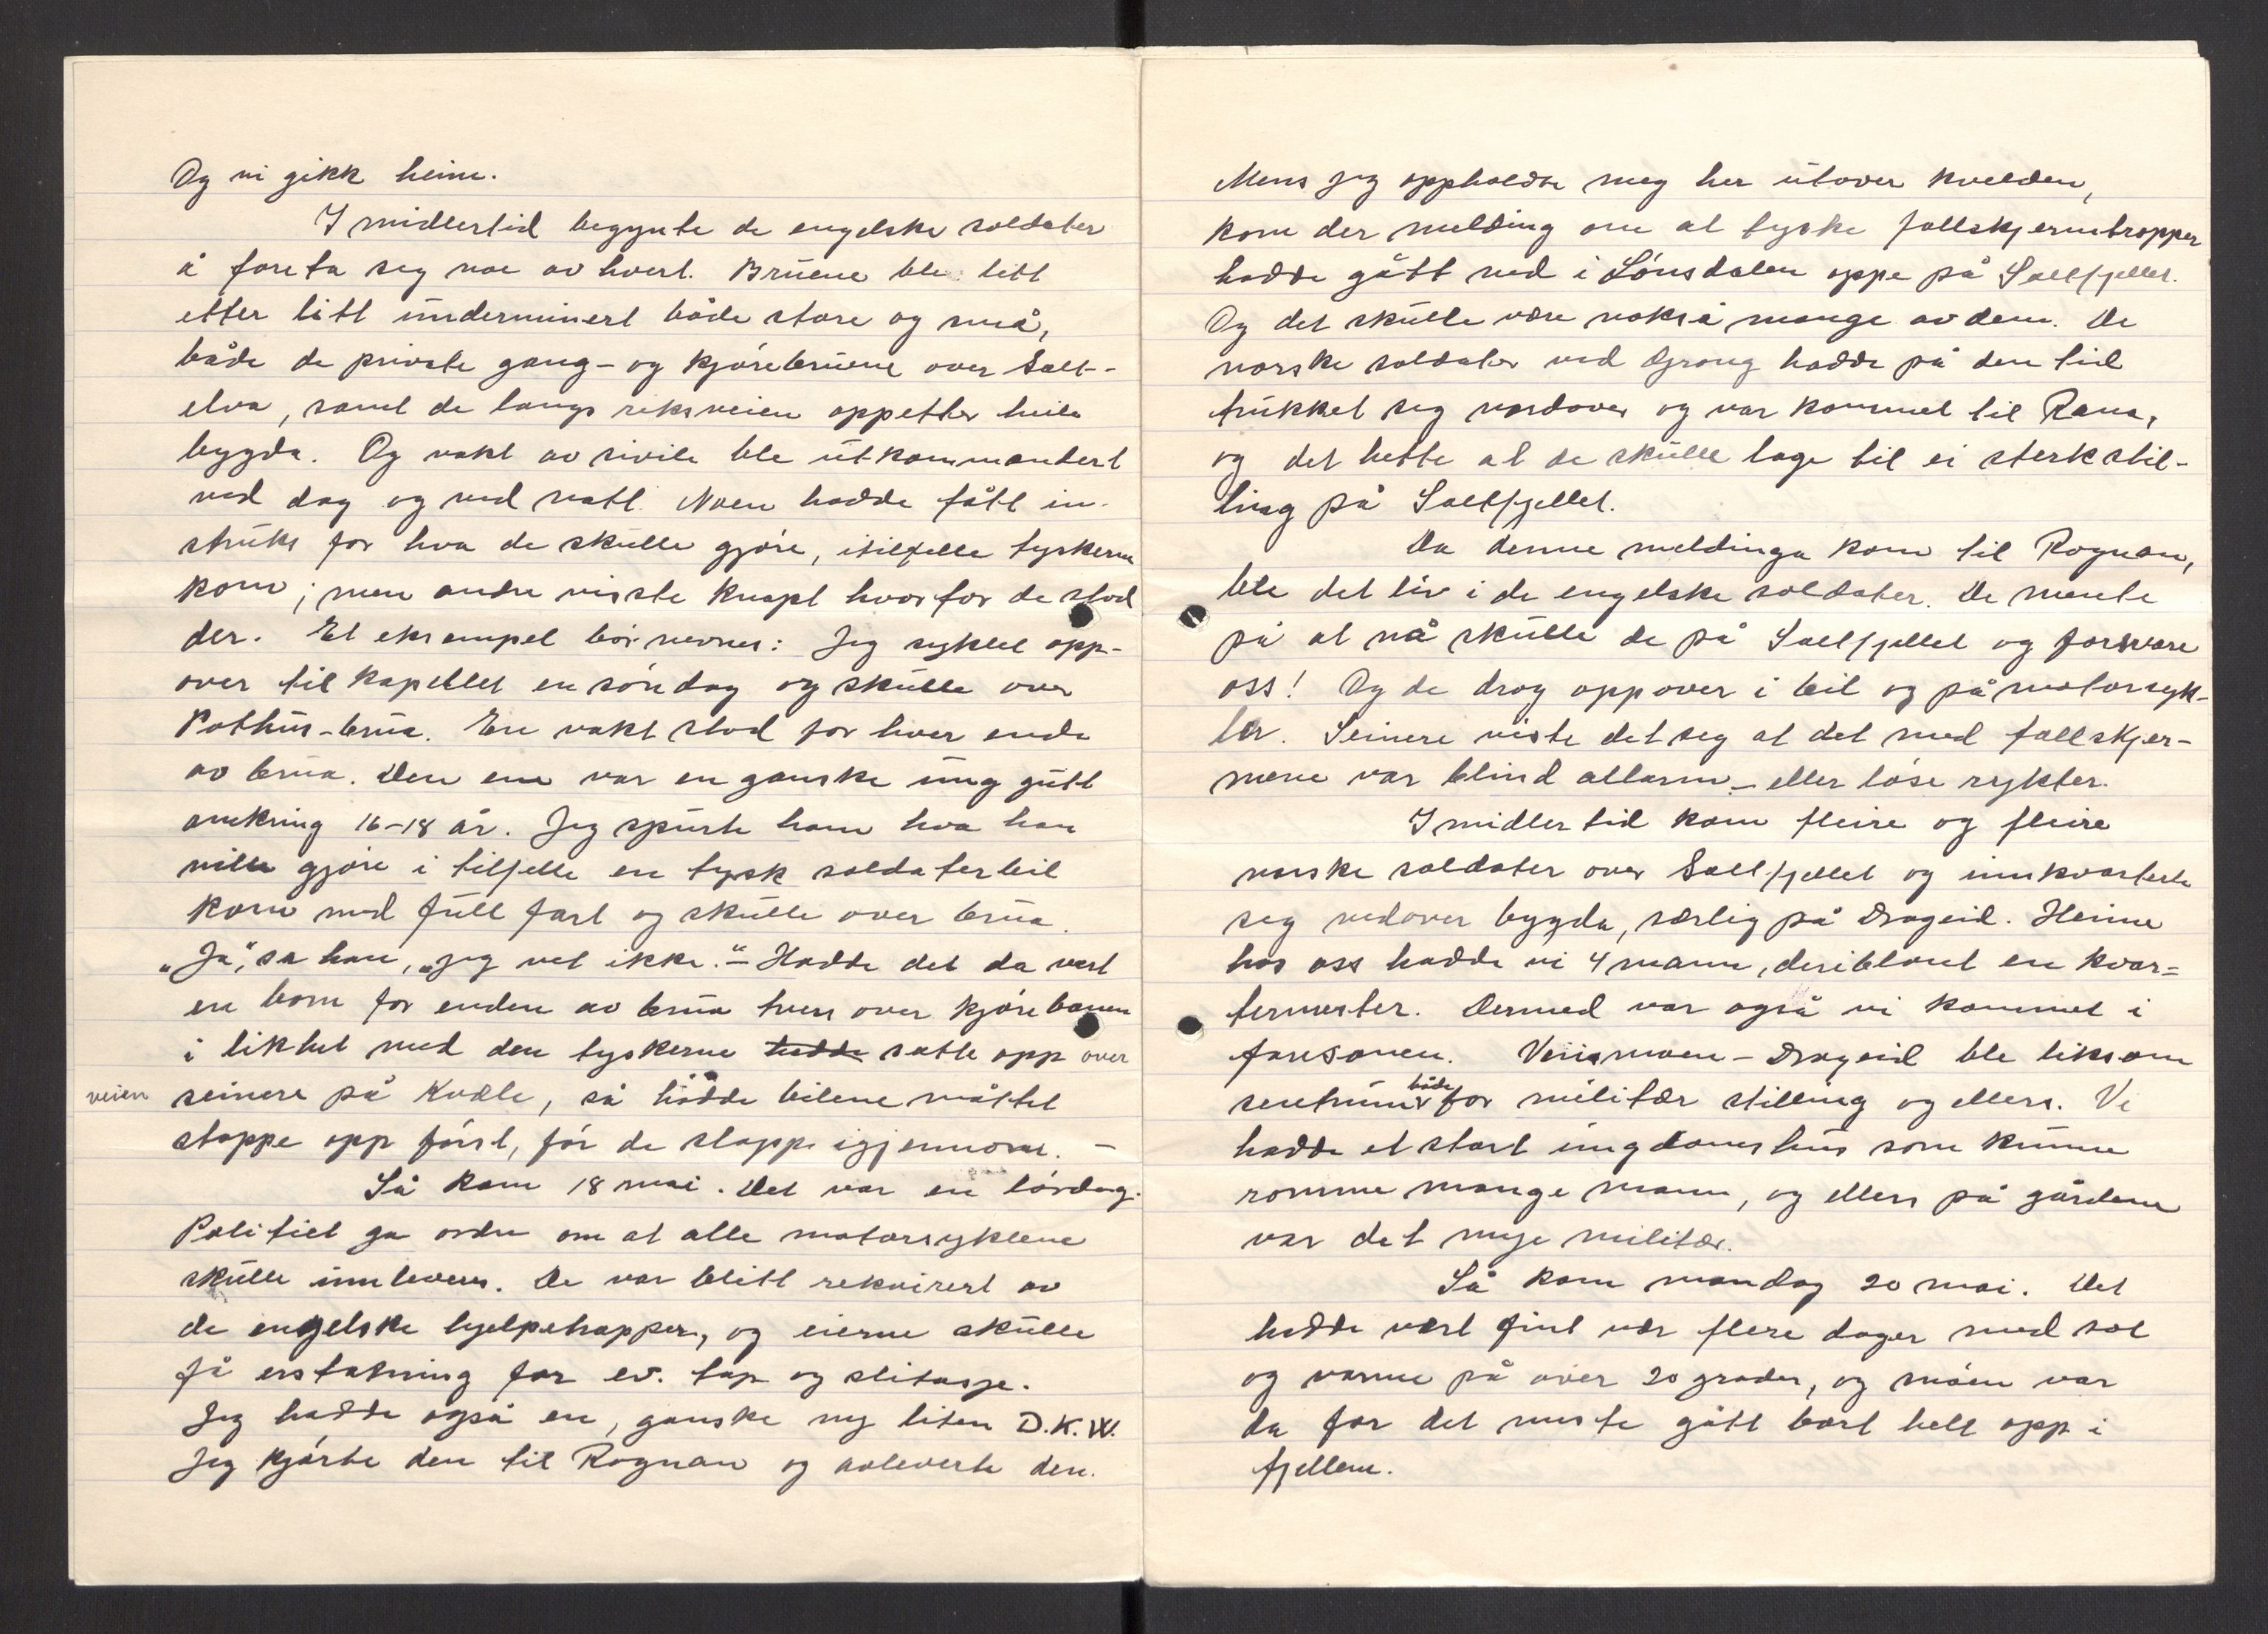 Og vi gikk heim.
I midlertid begynte de engelske soldater
å foreta seg noe av hvert. Bruene ble litt
etter litt underminert både store og små,
både de private gang- og kjørebruene over Salt-
elva, samt de langs riksveien oppetter heile
bygda. Og vakt av sivile ble utkommandert
ved dag og ved natt. Noen hadde fått in-
struks for hva de skulle gjøre, itilfelle tyskerne
kom; men andre visste knapt hvorfor de stod
der. Et eksempel bør nevnes: Jeg syklet opp-
over til kapellet en søndag og skulle over
Pothus-brua. En vakt stod for hver ende
av brua. Den ene var en ganske ung gutt
omkring 16-18 år. Jeg spurte ham hva han
ville gjøre i tilfelle en tysk soldaterbil
kom med full fart og skulle over brua.
„Ja", sa han, „jeg vet ikke." - Hadde det da vært
en bom for enden av brua tvers over kjørebanen
i likhet med den tyskerne hadde satte opp over
veien seinere på Kvæle, så hadde bilene måttet
stoppe opp først, før de slapp igjennom. -
Så kom 18 mai. Det var en lørdag.
Politiet ga ordre om at alle motorsyklene
skulle innleveres. De var blitt rekvirert av
de engelske hjelpetropper, og eierne skulle
få erstatning for ev. tap og slitasje.
Jeg hadde også en, ganske ny liten D.K.W.
Jeg kjørte den til Rognan og avleverte den.
Mens jeg oppholdt meg her utover kvelden,
kom der melding om at tyske fallskjermtropper
hadde gått ned i Lønsdalen oppe på Saltfjellet.
Og det skulle være nokså mange av dem. De
norske soldater ved Grong hadde på den tid
trukket seg nordover og var kommet til Rana,
og det hette at de skulle lage til ei sterk stil-
ling på Saltfjellet.
Da denne meldinga kom til Rognan,
ble det liv i de engelske soldater. De mente
på at nå skulle de på Saltfjellet og forsvare
oss! Og de drog oppover i bil og på motorsyk-
ler. Seinere viste det seg at det med fallskjer-
mene var blind allarm - eller løse rykter.
I midlertid kom fleire og fleire
norske soldater over Saltfjellet og innkvarterte
seg nedover bygda, særlig på Drageid. Heime
hos oss hadde vi 4 mann, deriblant en kvar-
termester. Dermed var også vi kommet i
faresonen. Vensmoen - Drageid ble liksom
sentrum både for militær stilling og ellers. Vi
hadde et stort ungdomshus som kunne
romme mange mann, og ellers på gårdene
var det mye militær.
Så kom mandag 20 mai. Det
hadde vært fint vær flere dager med sol
og varme på over 20 grader, og snøen var
da for det meste gått bort helt opp i
fjellene.